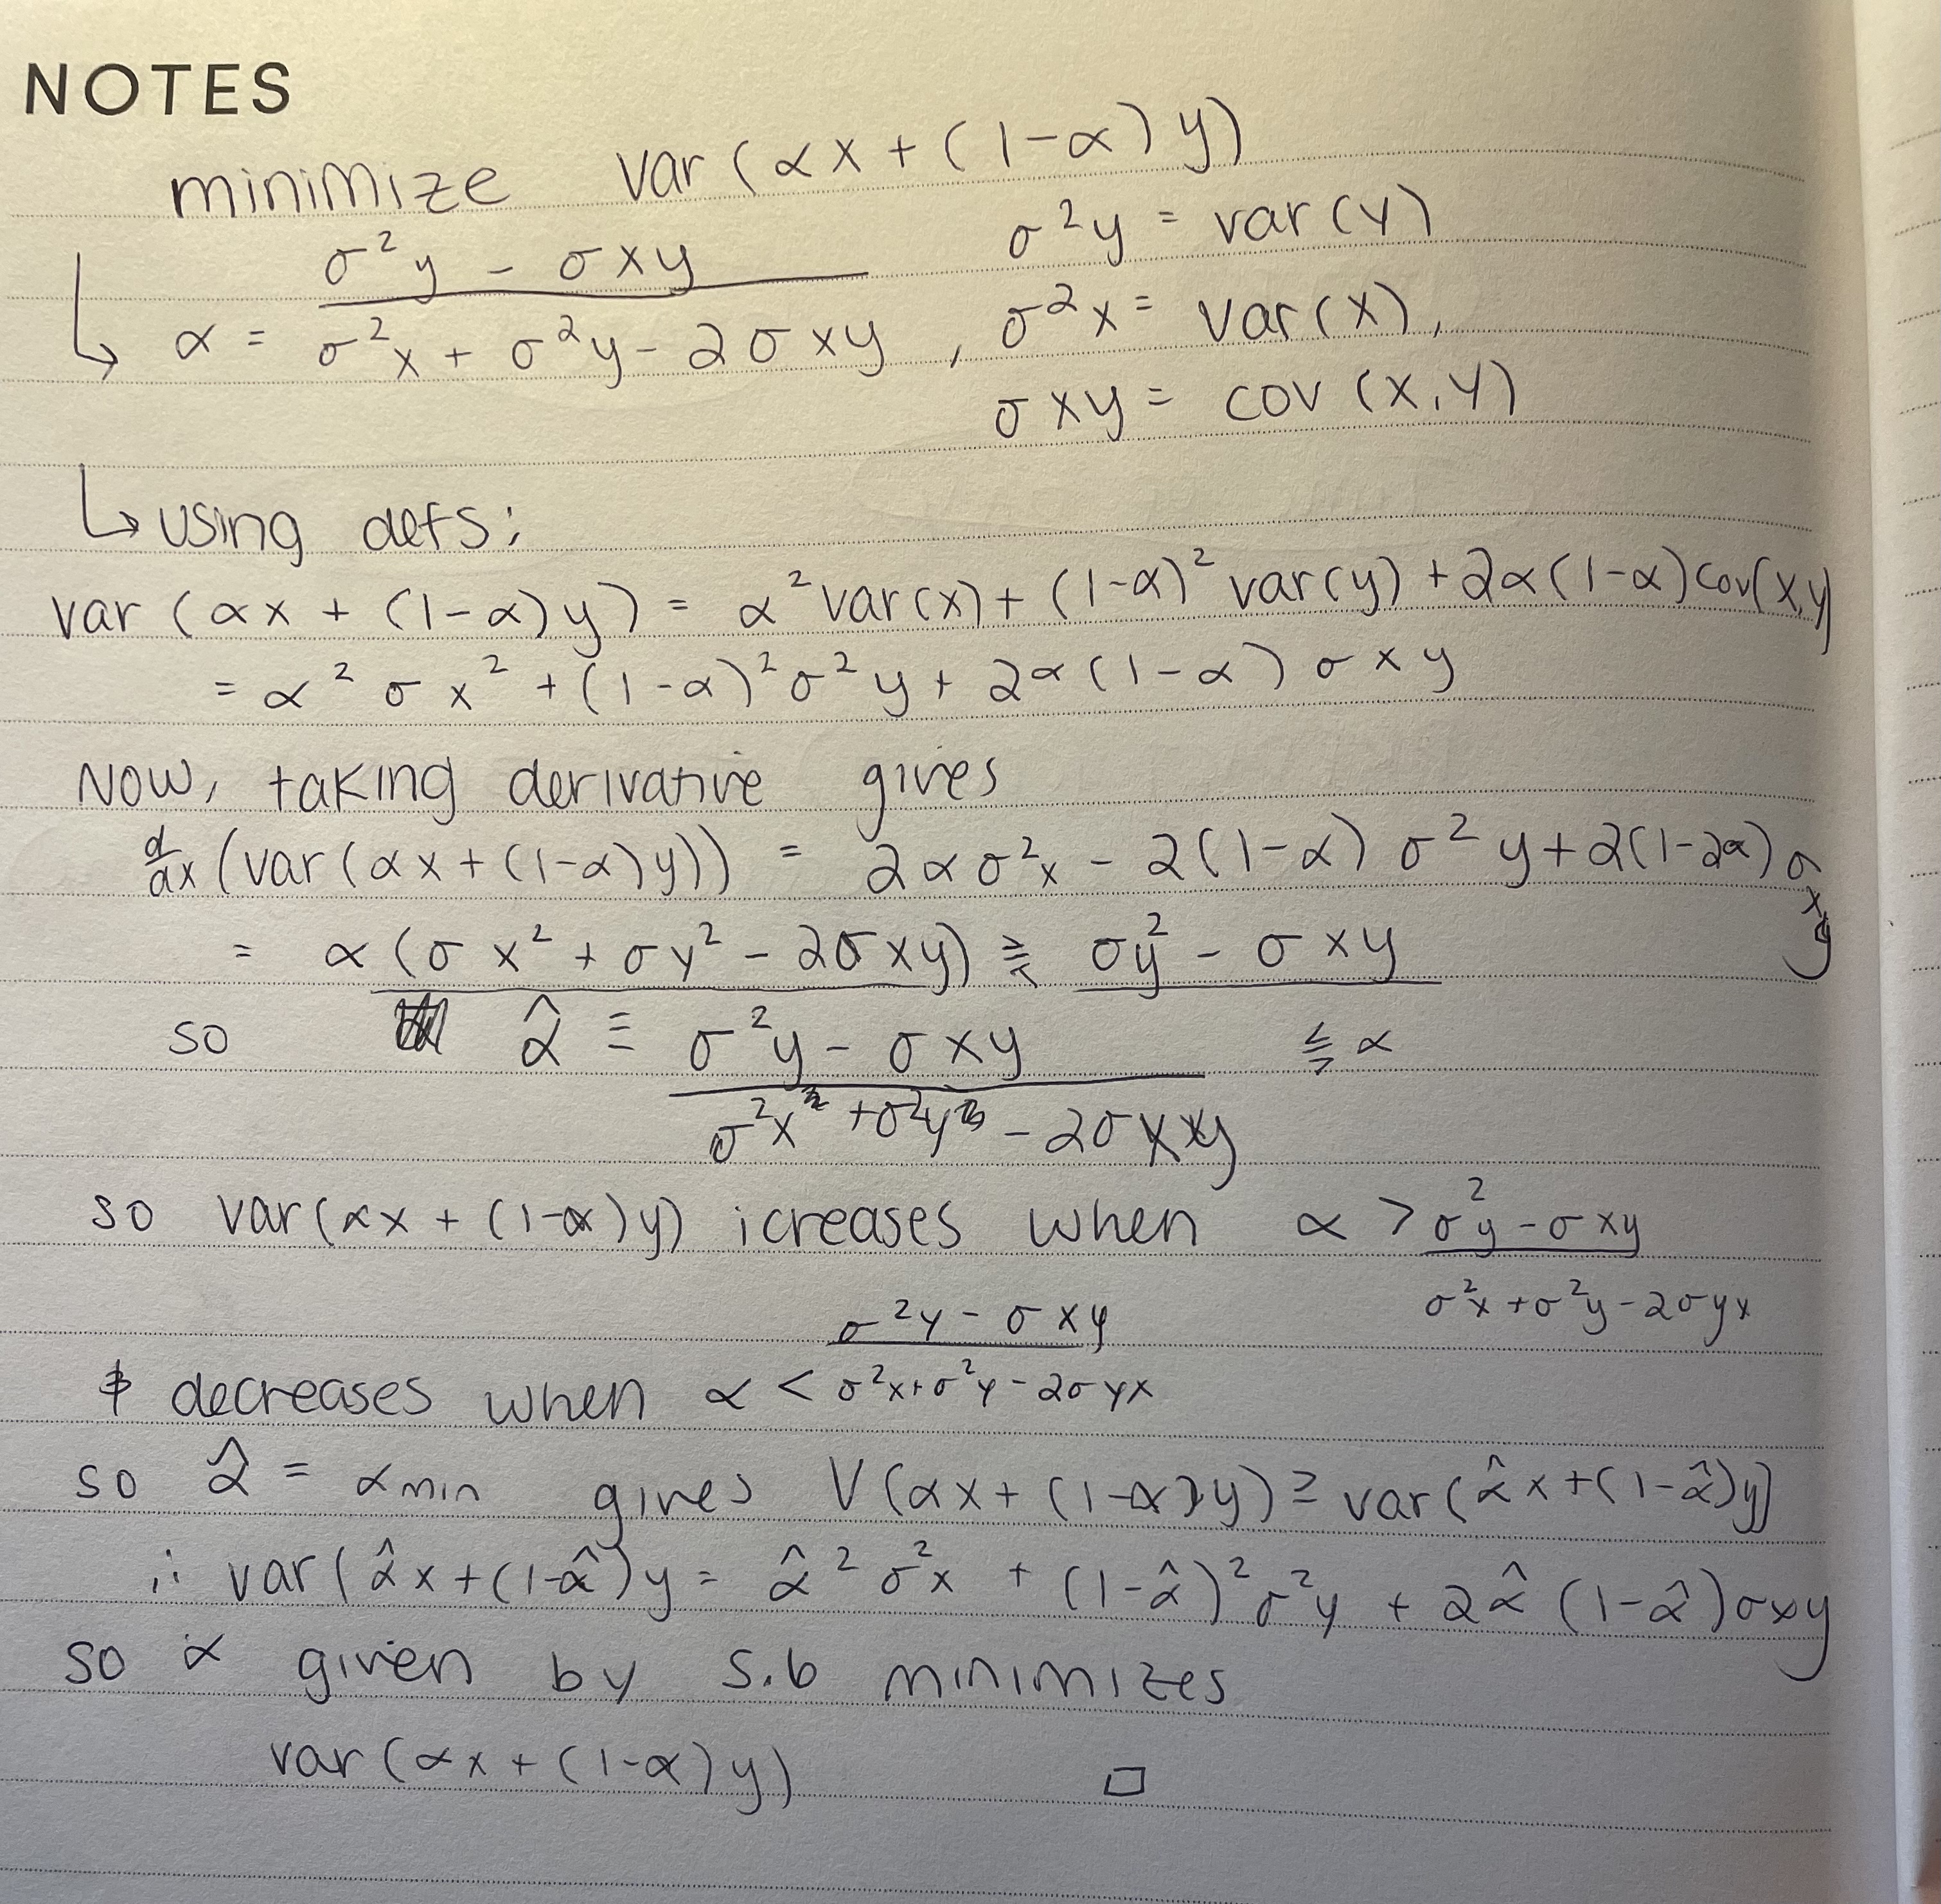 NOTES
minimize var(αx + (1-α)y)
α = (σ²y - σxy) / (σ²x + σ²y - 2σxy), σ²y = var(y)
σ²x = var(x),
σxy = cov(x,y)
↳ using defs:
var(αx + (1-α)y) = α²var(x) + (1-α)²var(y) + 2α(1-α)cov(x,y)
= α²σx² + (1-α)²σ²y + 2α(1-α)σxy
Now, taking derivative gives
d/dx (var(αx + (1-α)y)) = 2ασ²x - 2(1-α)σ²y + 2(1-2α)σxy
= α(σx² + σy² - 2σxy) ⪌ σy² - σxy
so α̂ ≡ (σ²y - σxy) / (σ²x + σ²y - 2σxy) ⪋ α
so var(αx + (1-α)y) icreases when α > (σ²y - σxy) / (σ²x + σ²y - 2σyx)
& decreases when α < (σ²y - σxy) / (σ²x + σ²y - 2σyx)
so α̂ = αmin gives V(αx + (1-α)y) ≥ var(α̂x + (1-α̂)y)
∴ var(α̂x + (1-α̂)y = α̂²σ²x + (1-α̂)²σ²y + 2α̂(1-α̂)σxy
so α given by 5.6 minimizes
var(αx + (1-α)y) □